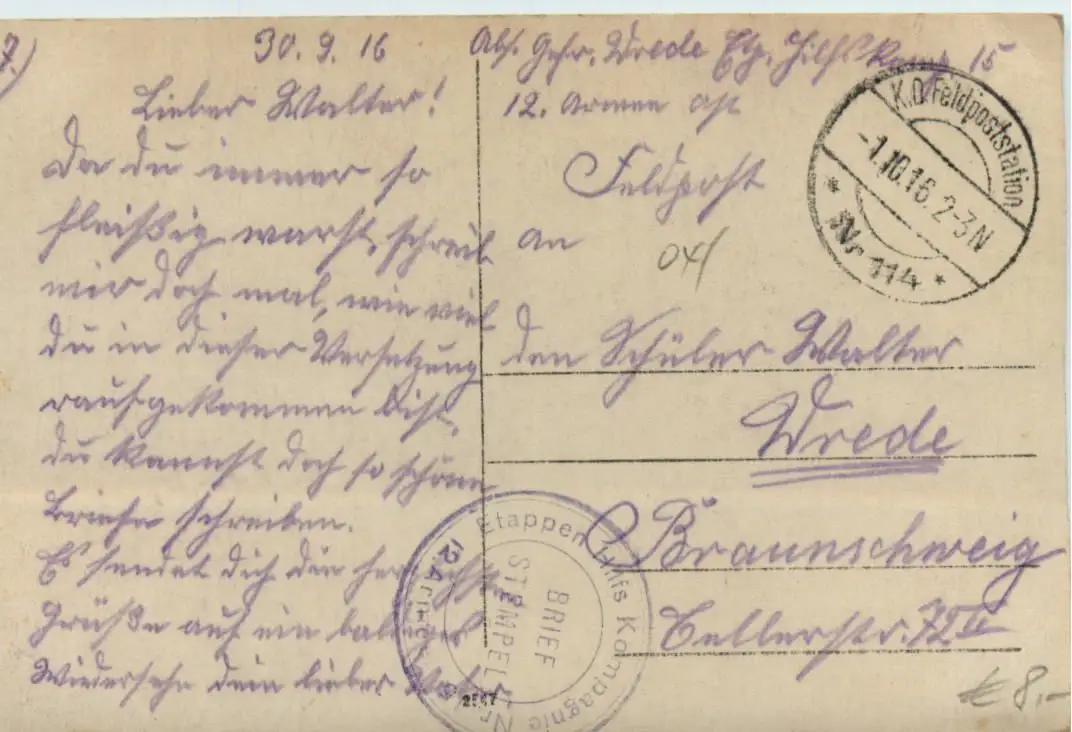 7.)
30.9.16
Lieber Walter!
Da du immer so
fleißig warst, schreib
mir doch mal, wie viel
du in dieser Versetzung
raufgekommen bist,
du kannst doch so schöne
Briefe schreiben.
Es sendet dich die herzlichsten
Grüße auf ein baldiges
Wiedersehn dein lieber Vater
Abs. Gefr. Wrede Etp. Hilfs Komp 15
12. Armee
Feldpost
an
den Schüler Walter
Wrede
Braunschweig
Cellerstr. 72 II
K.D. Feldpoststation
-1.10.16. 2-3N
* Nr 114 *
Etappen Hilfs Kompagnie Nr
12 Armee
BRIEF
STEMPEL
2547
€ 8,-